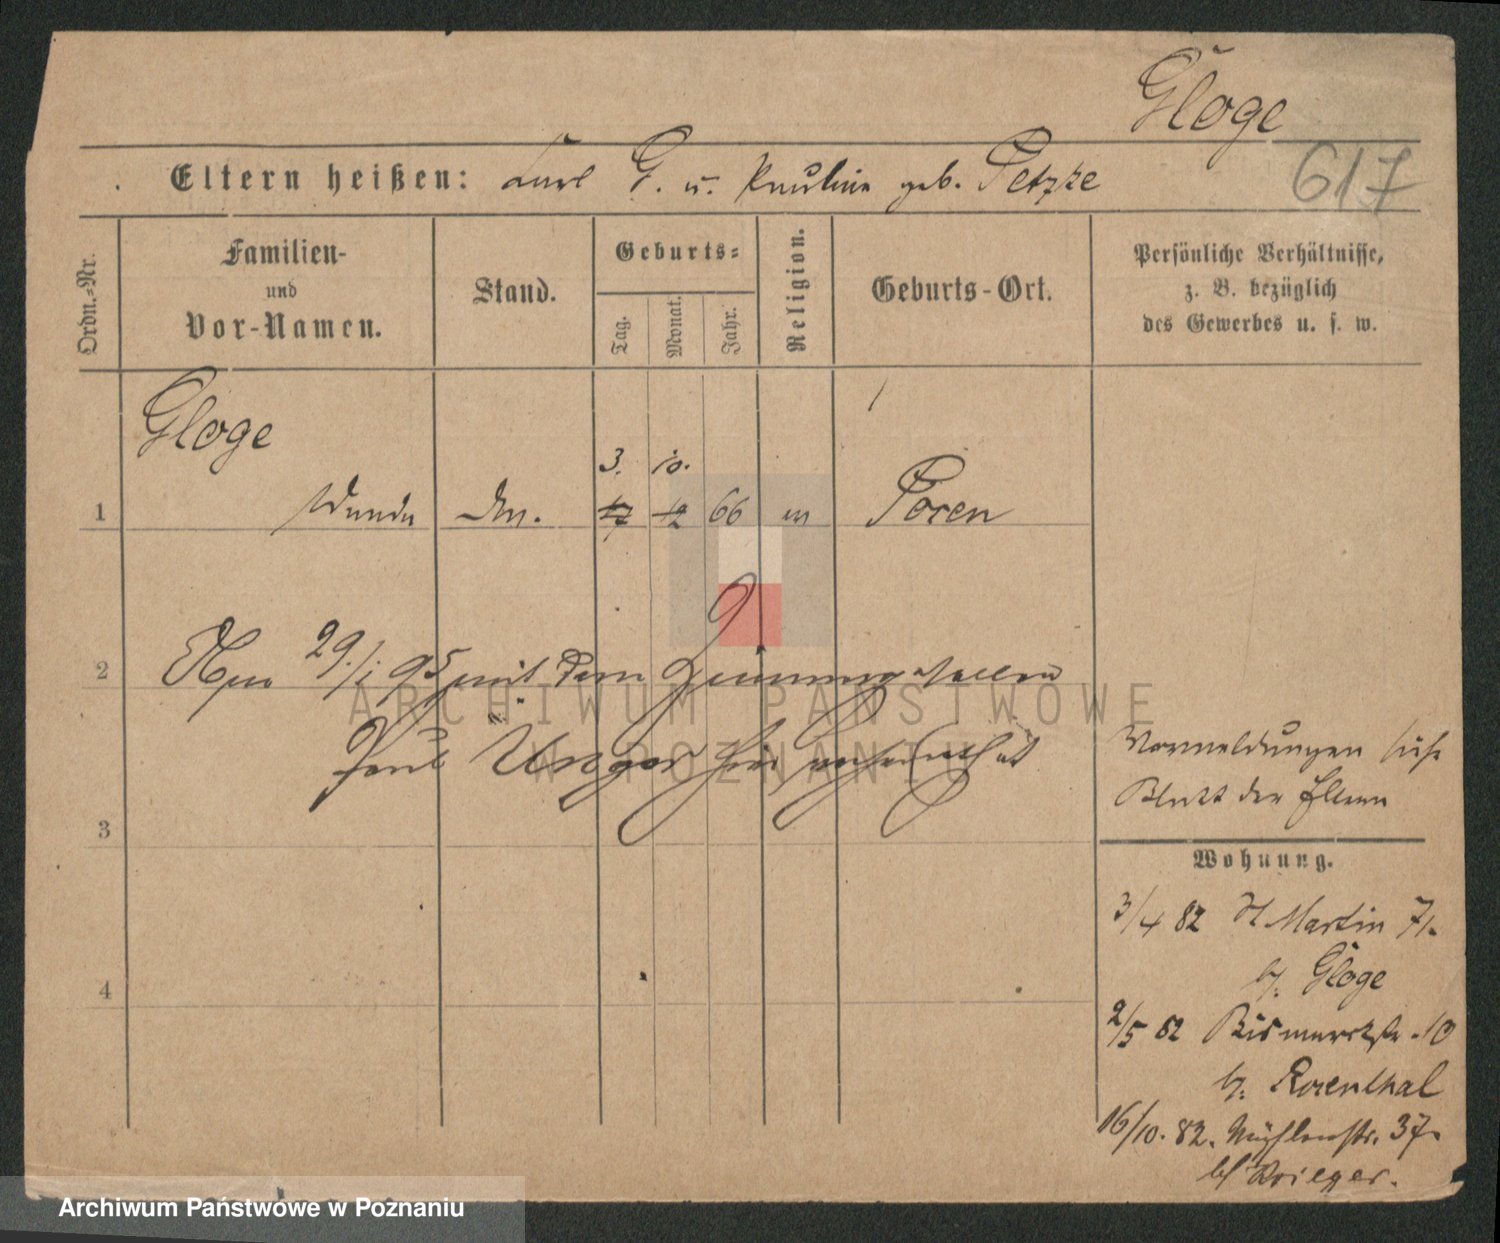 Gloge
617
Eltern heißen: Carl G. u. Pauline geb. Petzke
Ordn.-Nr.
Familien-
und
Vor-Namen.
Stand.
Geburts-
Tag.
Monat.
Jahr.
Religion.
Geburts-Ort.
Persönliche Verhältnisse,
z. B. bezüglich
des Gewerbes u. s. w.
Gloge
3. 10.
1 Wanda 17 12 66 ev Posen
2 29./1 95 mit dem
ARCHIWUM PAŃSTWOWE
Paul Unger hier verheirathet
W POZNANIU
Vormeldungen siehe
Blatt der Eltern
3
Wohnung.
3/4 82 St Martin 71.
b. Gloge
4
2/5 82 Bismarckstr. 10
b. Rosenthal
16/10. 82. Mühlenstr. 37.
bei Krieger.
Archiwum Państwowe w Poznaniu